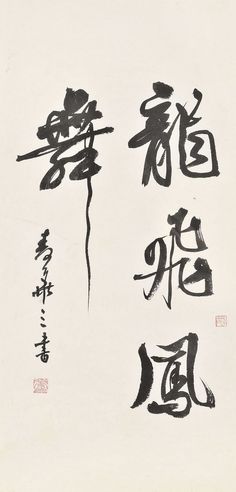 龍飛鳳
舞
書